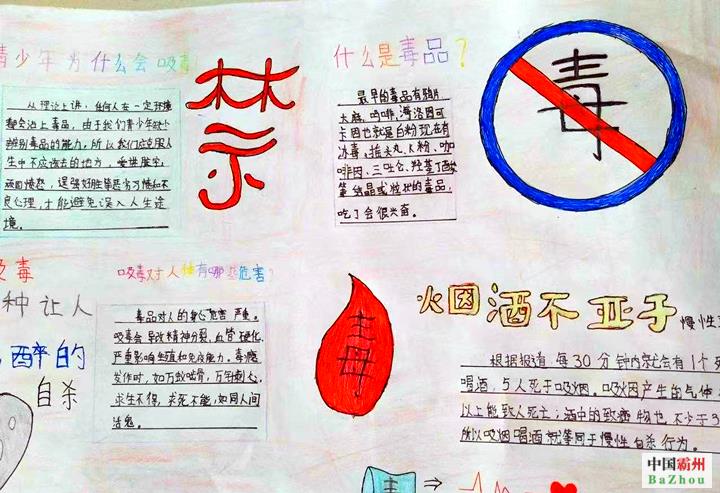 青少年为什么会吸毒
从理论上讲,任何人在一定环境
都会沾上毒品,由于我们青少年缺少
辨别毒品的能力,所以我们应克服人
生中不应该去的地方,
顽固愤愁,逞强好胜等
良心理,才能避免误入人生途
境。
禁
什么是毒品?
最早的毒品有鸦片
大麻,吗啡,海洛因可
卡因也就是白粉现在有
冰毒、摇头丸、K粉、咖
啡因、三唑仑、羟基丁酸
等结晶或粒状的毒品,
吃了会很兴奋。
毒
吸毒
种让人
醉的
自杀
吸毒对人体有哪些危害?
毒品对人的身心危害严重。
吸毒会导致精神分裂,血管硬化,
严重影响生殖和免疫能力。毒瘾
发作时,如万蚁啃骨,万针刺心,
求生不得,求死不能,如同人间
活鬼。
毒
烟因酒不亚于慢性
根据报道,每30分钟内就会有1个死
喝酒,5人死于吸烟。吸烟因产生的气体
以上能致人死亡;酒中的致癌物也不少于3
所以吸烟喝酒就等同于慢性自杀行为。
毒
中国霸州
BaZhou